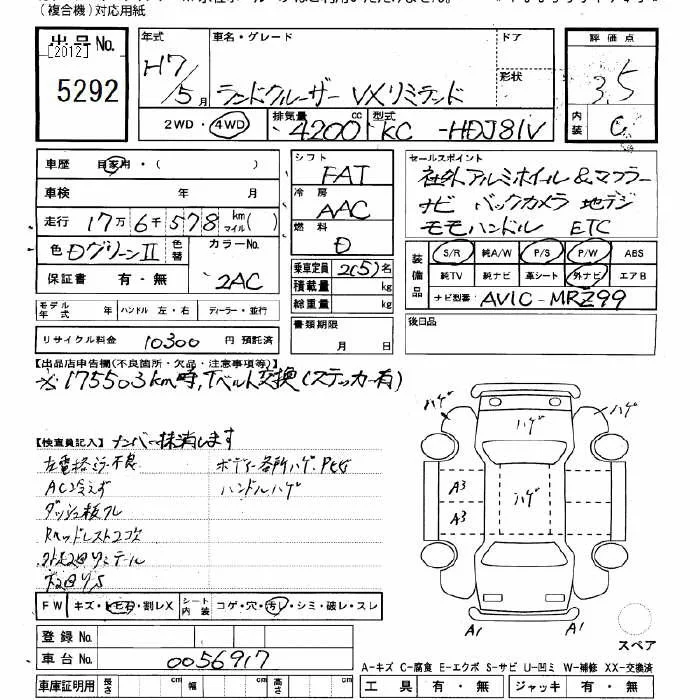 (複合機)対応用紙
出品No.
[2012]
5292
年式 H7/5月
車名・グレード ランドクルーザー VXリミテッド
ドア
形状
評価点 3.5
内装 C
2WD・4WD 排気量 4200cc 型式 KC-HDJ81V
車歴 自家用・( )
車検 年 月
走行 17万6千578 km マイル( )
色 Dグリーン II 色替 カラーNo. 2AC
保証書 有・無
シフト FAT
冷房 AAC
燃料 D
乗車定員 2(5)名
積載量 kg
総重量 kg
セールスポイント
社外アルミホイール&マフラー
ナビ バックカメラ 地デジ
モモハンドル ETC
装備品 S/R 純A/W P/S P/W ABS
純TV 純ナビ 革シート 外ナビ エアB
ナビ型番 AVIC-MRZ99
モデル年式 年 ハンドル 左・右 ディーラー・並行
リサイクル料金 10300円 預託済
書類期限 月 日
後日品
【出品店申告欄(不良箇所・欠品・注意事項等)】
※175503km時,Tベルト交換(ステッカー有)
【検査員記入】 ナンバー抹消します
左電格ミラー不良
AC冷えず
ボディー各所ハゲ、
ハンドルハゲ
FW キズ・トビ石・割レX シート内装 コゲ・穴・汚レ・シミ・破レ・スレ
登録No.
車台No. 0056917
車庫証明用 長さ cm 幅 cm 高さ cm
ハゲ ハゲ ハゲ
A3 ハゲ
A3
A1 A1
スペア
A-キズ C-腐食 E-エクボ S-サビ U-凹ミ W-補修 XX-交換済
工具 有・無 ジャッキ 有・無